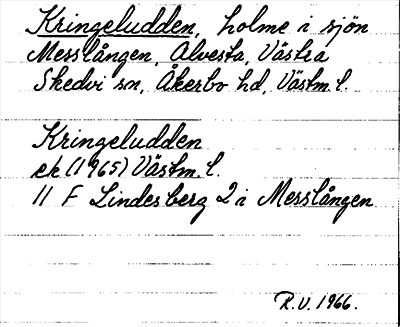 Kringeludden, holme i sjön
Messlången, Alvesta, Västra
Skedvi sn, Åkerbo hd, Västm. l.
Kringeludden
ek (1965) Västm. l.
11 F Lindesberg 2 i Messlången
R.V. 1966.